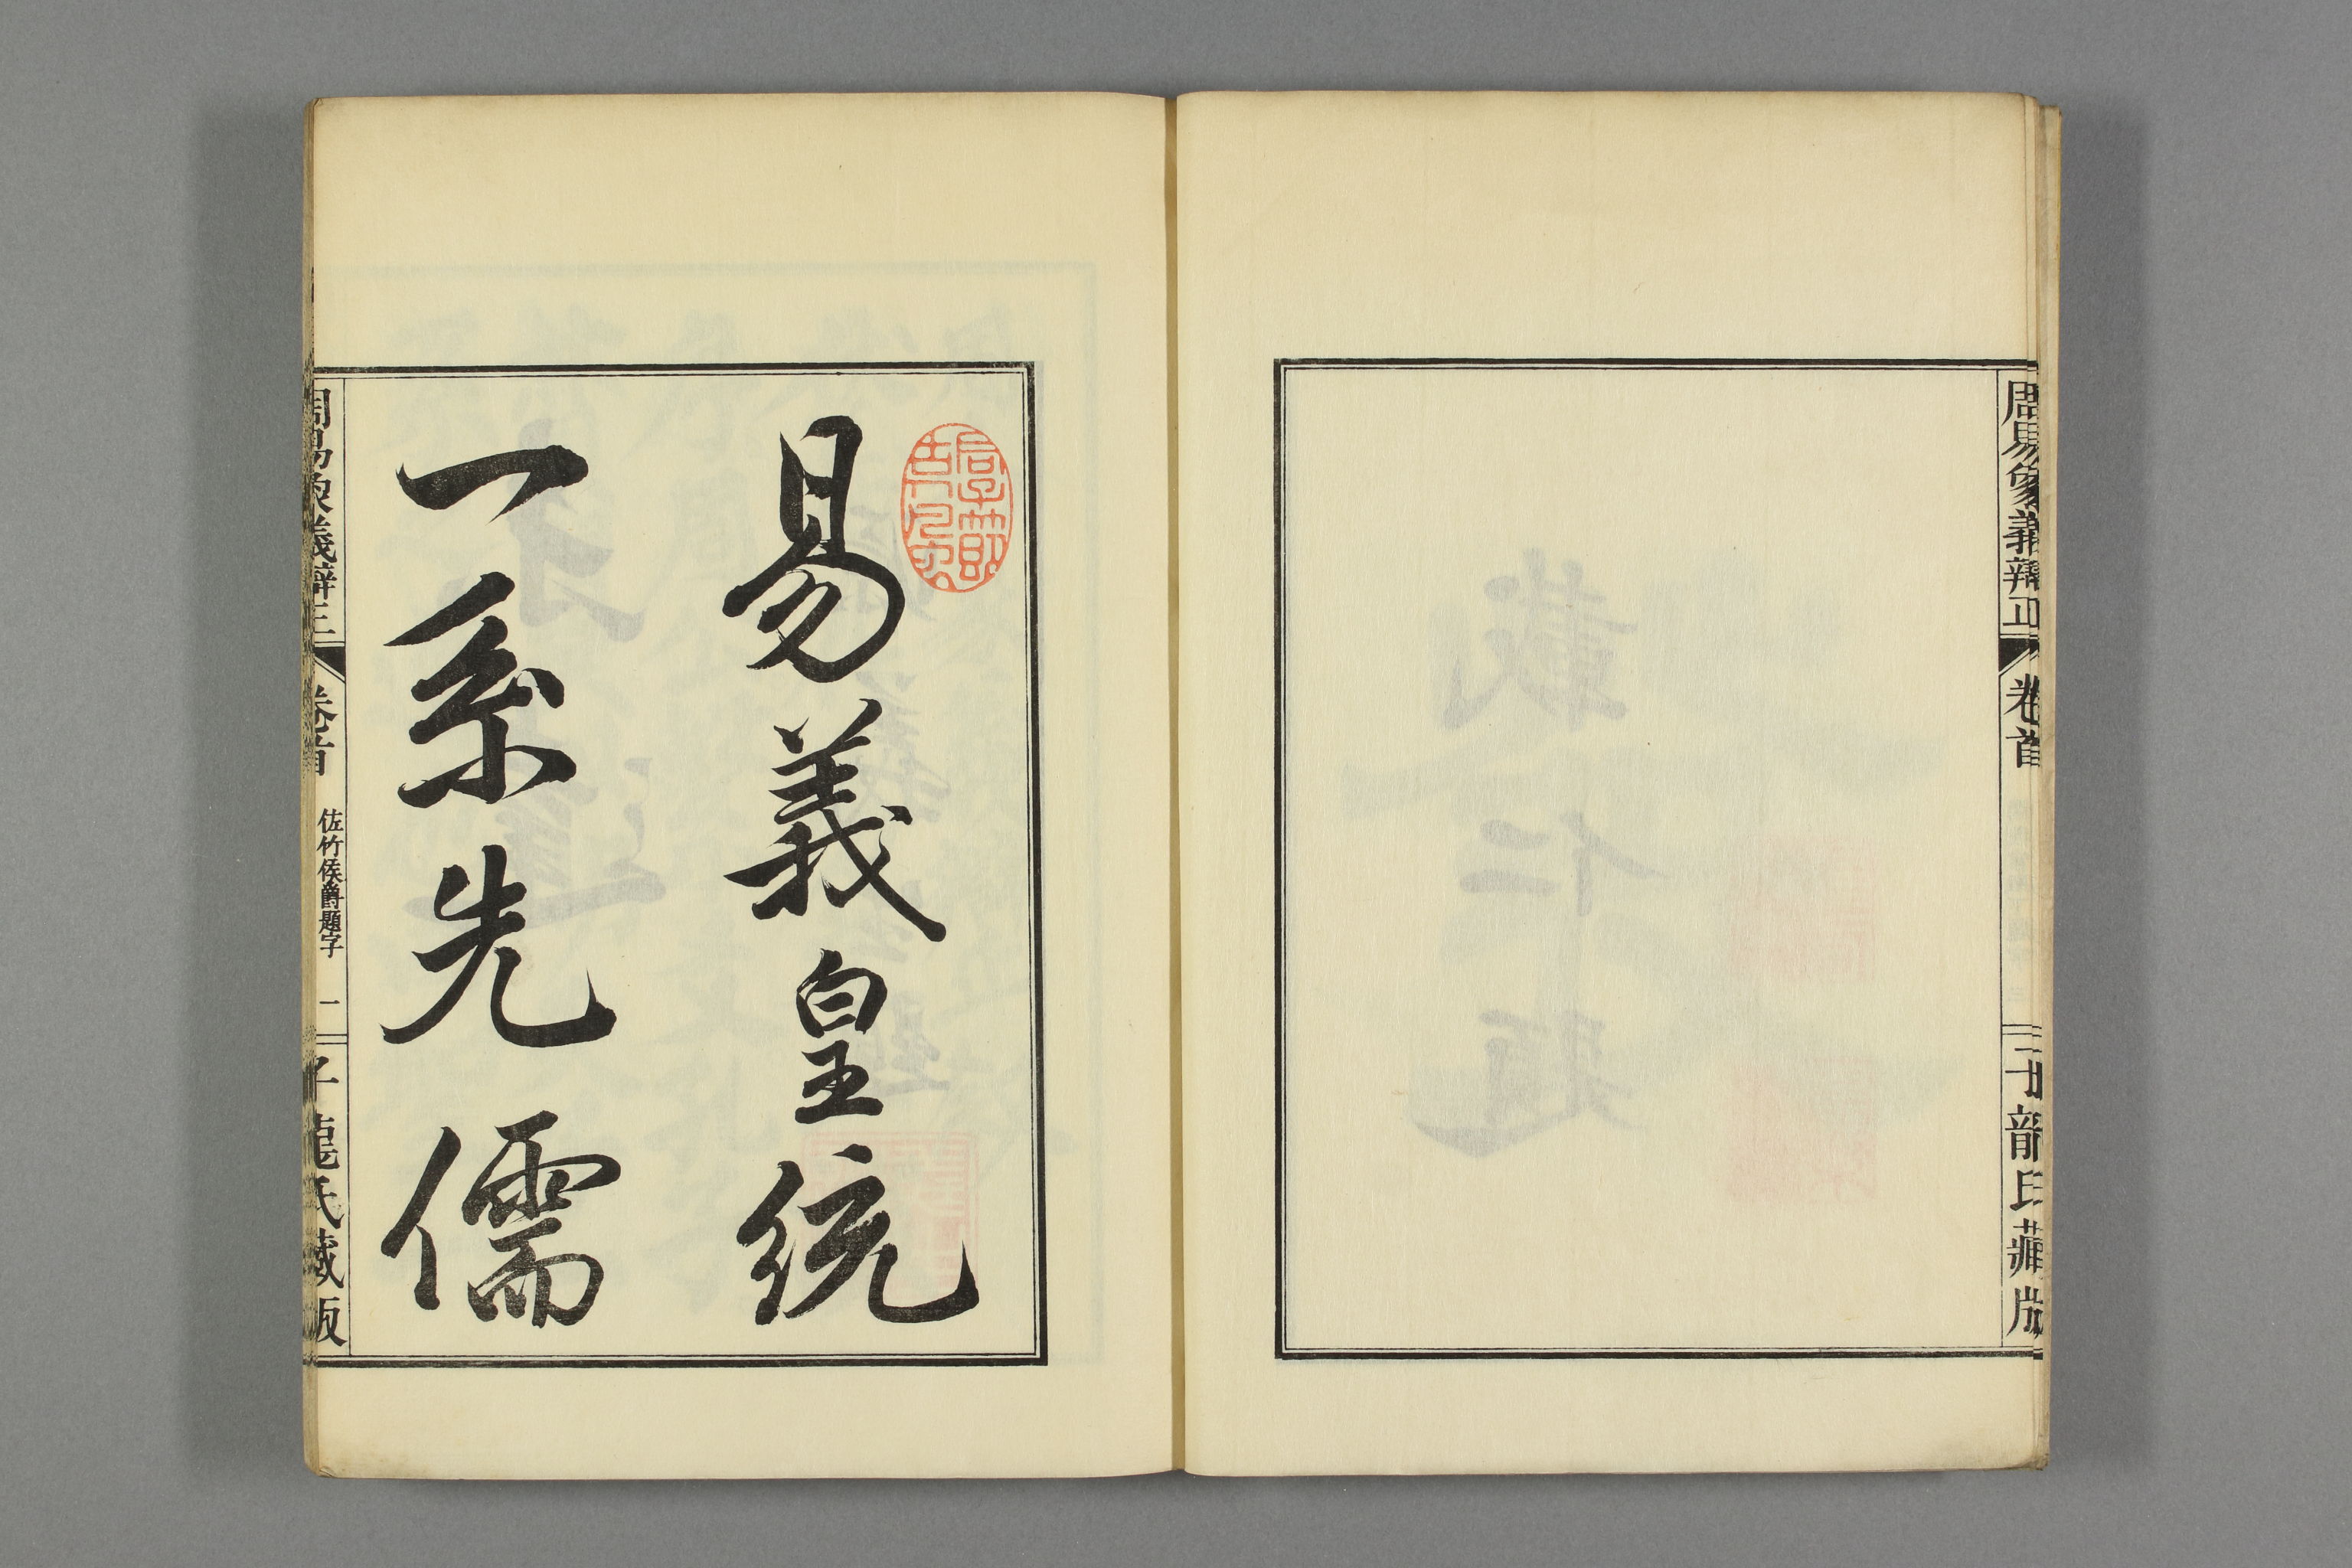 周易象義辯正
卷首
易義皇統
一系先儒
周易象義辯正
卷首
佐竹侯爵題字
一
子龍氏藏版